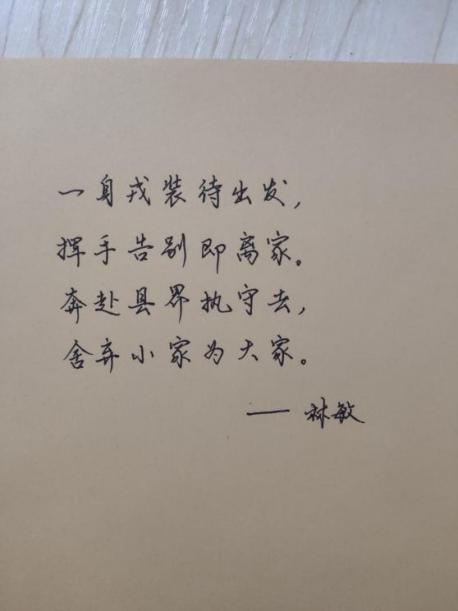 一身戎装待出发，
挥手告别即离家。
奔赴县界执守去，
舍弃小家为大家。
—— 林敏